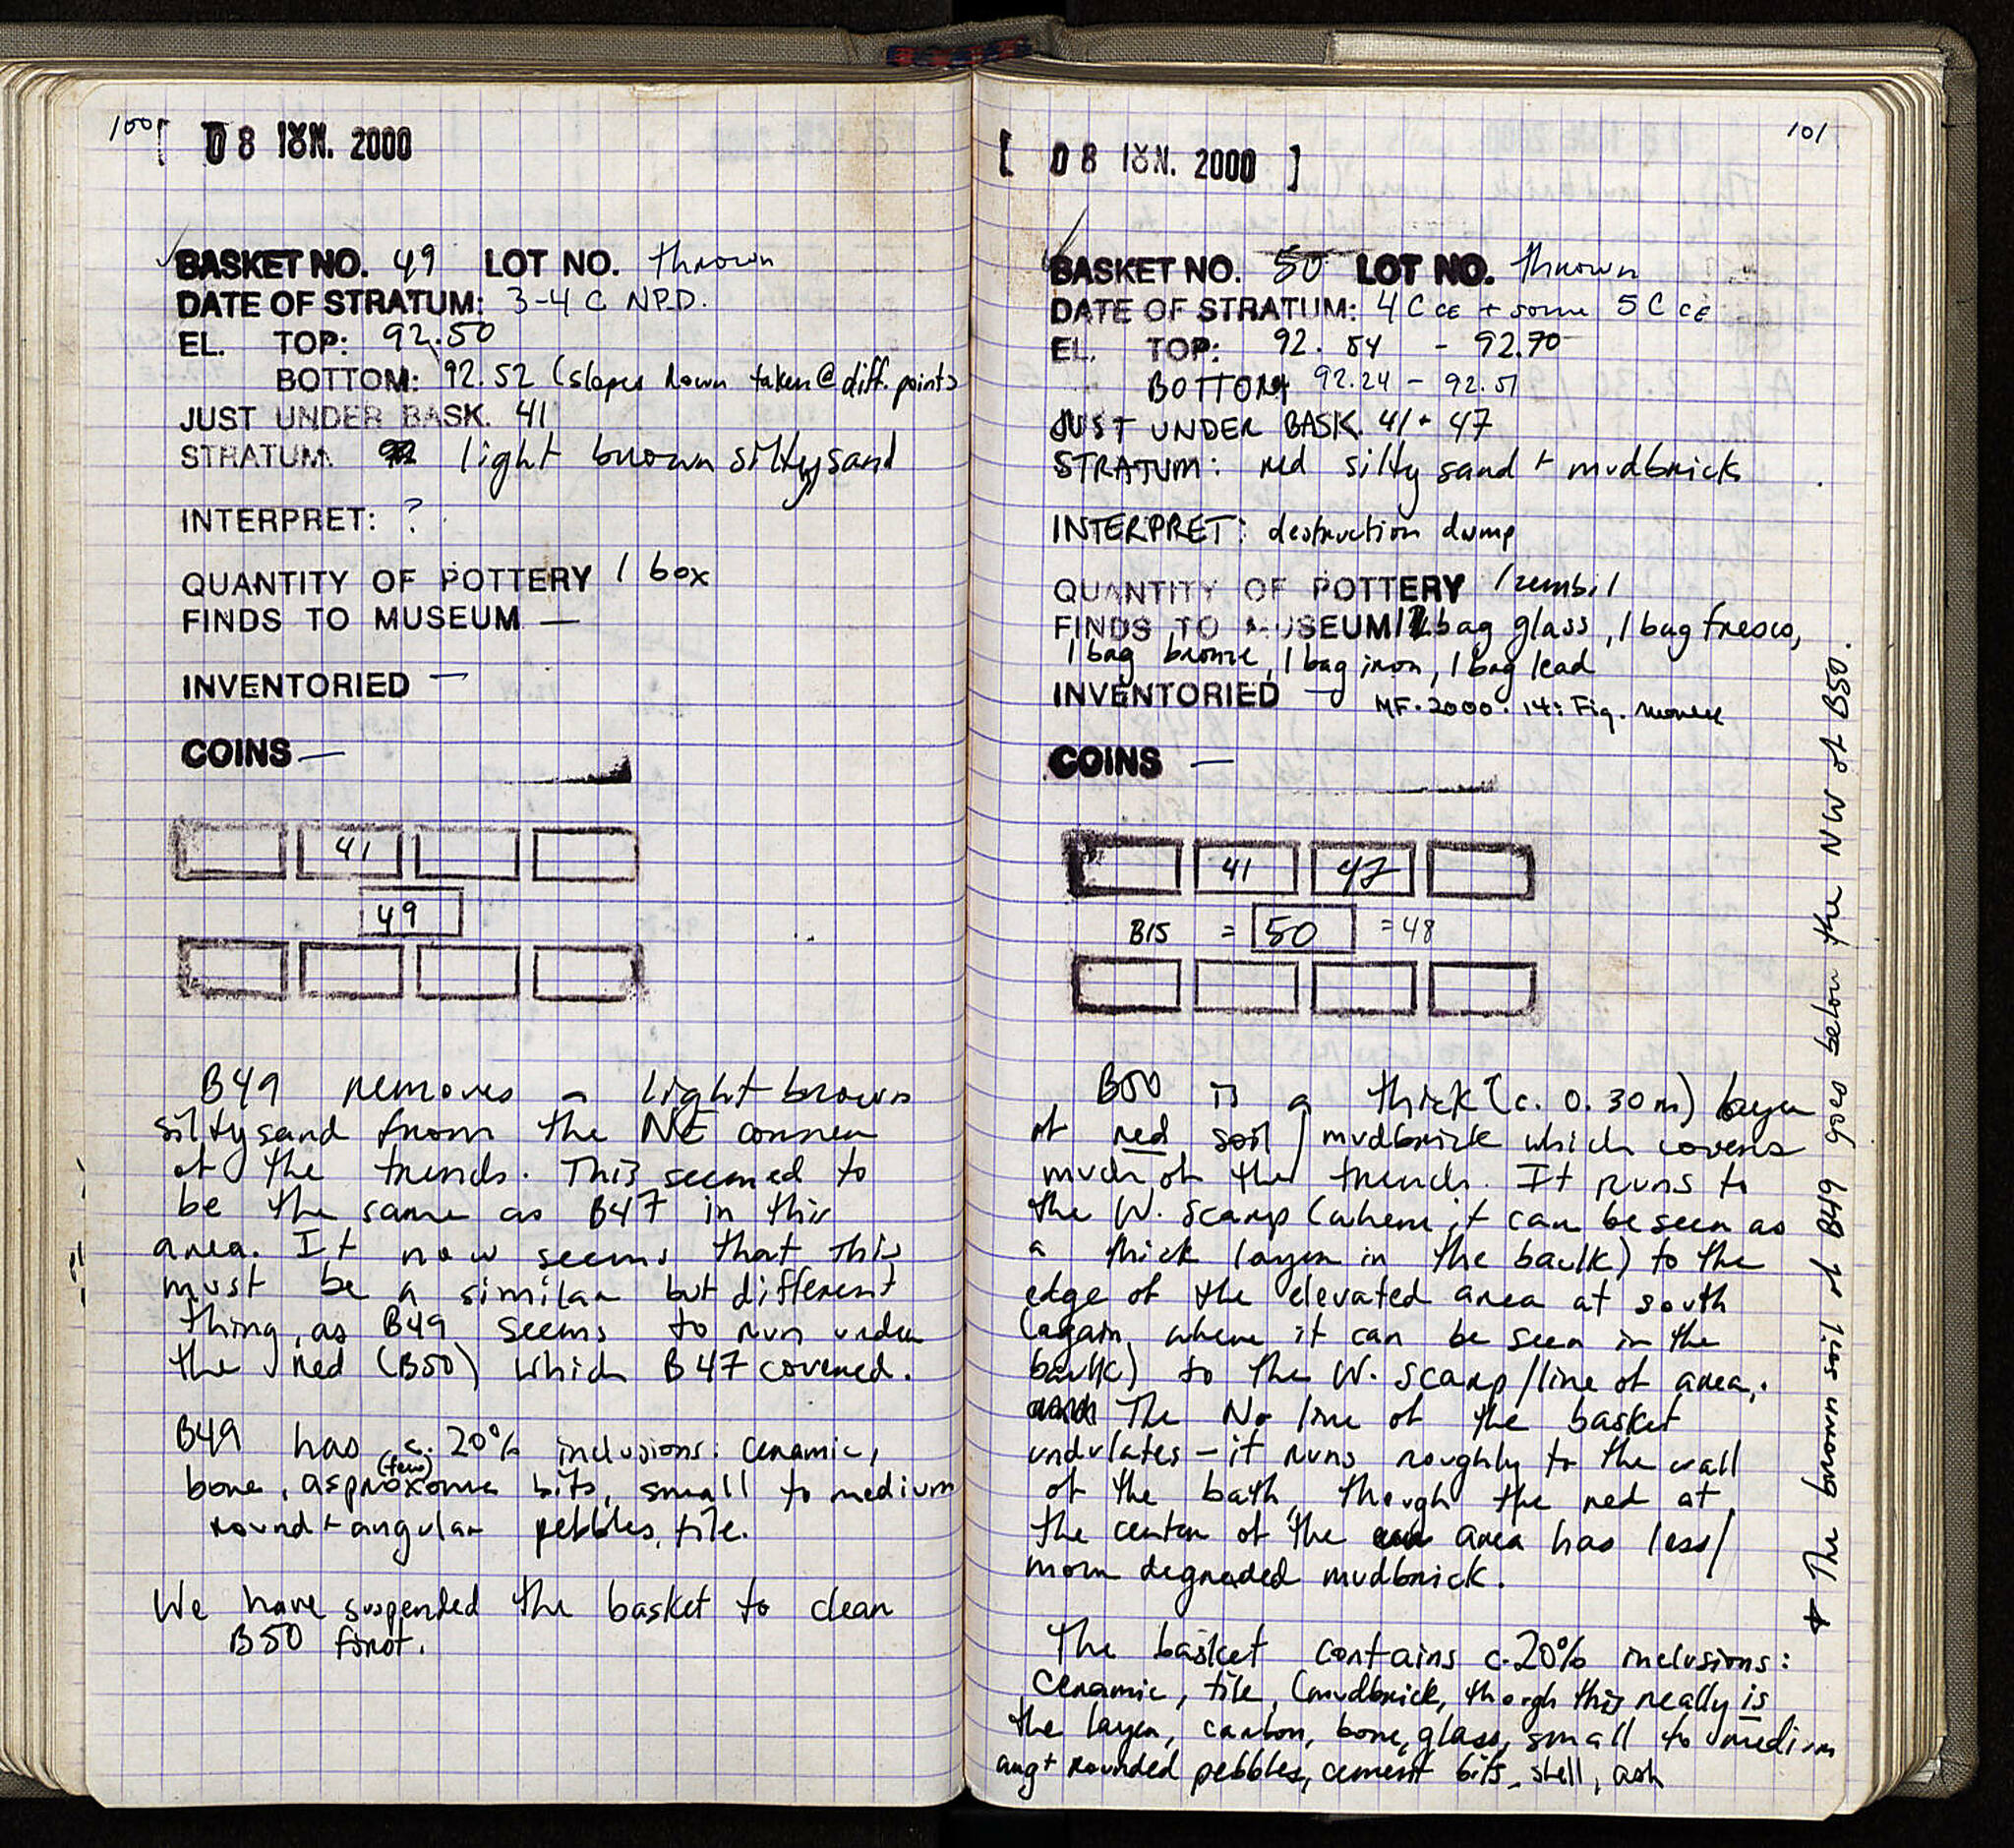 100
[ 08 ΙΟΥΝ. 2000
BASKET NO. 49 LOT NO. thrown
DATE OF STRATUM: 3-4 C N.P.D.
EL. TOP: 92.50
BOTTOM: 92.52 (slopes down taken @ diff. points
JUST UNDER BASK. 41
STRATUM: light brown silty sand
INTERPRET: ?
QUANTITY OF POTTERY 1 box
FINDS TO MUSEUM —
INVENTORIED —
COINS —
41
49
B49 removes a light brown
silty sand from the NE corner
of the trench. This seemed to
be the same as B47 in this
area. It now seems that this
must be a similar but different
thing, as B49 seems to run under
the red (B50) which B47 covered.
B49 has c. 20% inclusions: ceramic,
bone, (few) asproxoma bits, small to medium
round + angular pebbles, tile.
We have suspended the basket to clean
B50 first.
101
[ 08 ΙΟΥΝ. 2000 ]
BASKET NO. 50 LOT NO. thrown
DATE OF STRATUM: 4 C CE + some 5 C CE
EL. TOP: 92.54 - 92.70
BOTTOM 92.24 - 92.51
JUST UNDER BASK. 41 + 47
STRATUM: red silty sand + mudbrick
INTERPRET: destruction dump
QUANTITY OF POTTERY 1 zembil
FINDS TO MUSEUM 1 bag glass, 1 bag fresco,
1 bag bronze, 1 bag iron, 1 bag lead
INVENTORIED — MF.2000.14: Fig.
COINS —
41 47
B15 = 50 = 48
B50 is a thick (c. 0.30m) layer
of red soil / mudbrick which covers
much of the trench. It runs to
the W. Scarp (where it can be seen as
a thick layer in the baulk) to the
edge of the elevated area at south
(again, where it can be seen in the
baulk) to the W. scarp/line of area.
The No line of the basket
undulates – it runs roughly to the wall
of the bath, though the red at
the center of the area has less/
more degraded mudbrick.
The basket contains c. 20% inclusions:
ceramic, tile, (mudbrick, though this really is
the layer, carbon, bone, glass, small to medium
ang + rounded pebbles, cement bits, shell, ash
* The brown soil of B49 goes below the NW of B50.